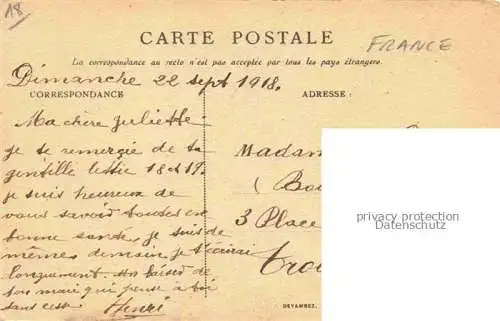 18
CARTE POSTALE
FRANCE
La correspondance au recto n'est pas acceptée par tous les pays étrangers.
Dimanche 22 sept 1918.
CORRESPONDANCE
ADRESSE :
Ma chère Juliette
je te remercie de ta
gentille lettre 18 et 19.
je suis heureux de
vous savoir toutes en
bonne santé, je suis de
mêmes demain je t'écrirai
longuement.
ton mari qui pense à toi
sans cesse Henri
Madam
(Bou
3 Place
Tro
privacy protection
Datenschutz
DEVAMBEZ,